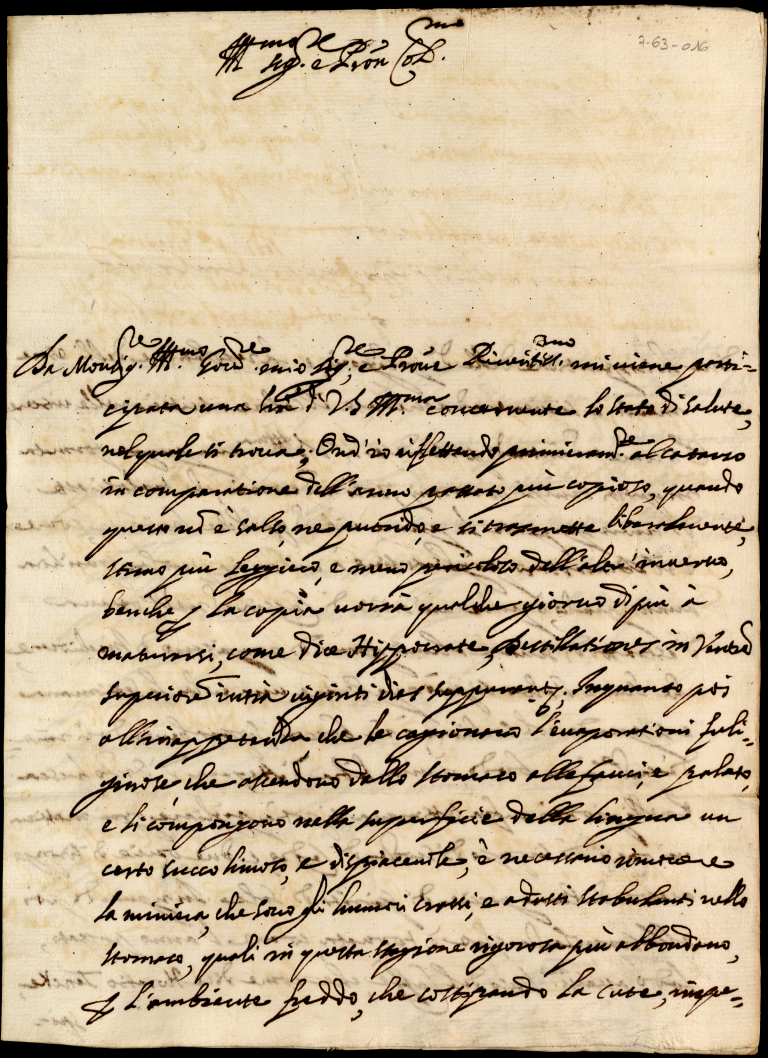 7-63-016
Ill.mo Sig.re e Pron Col.mo
Da Monsig.re Ill.mo Gov.re mio Sig.re, e Prone Riveritiss.mo mi viene parti=
cipata una lra di V.S. Ill.ma concernente lo stato di salute,
nel quale si trova; Ond'io riflettendo primieram.te al catarro
in comparatione dell'anno passato più copioso, quando
questo nō è salso, ne putrido, e si trasmette liberalmente,
stimo più leggiero, e meno pericoloso dell'altr'inverno,
benche p la copia vorrà qualche giorno di più à
maturarsi, come dice Hippocrate, Distillationes in Ventrē
superiorē intra viginti dies suppurant.r. Inquanto poi
all'inappetenza, che le cagionano l'evaporationi fuli=
ginose, che ascendono dallo stomaco alle fauci, e palato,
e si compongono nella superficie della lingua un
certo succo limoso, e dispiacevole, è necessario
la miniera, che sono gli humori crassi, e adusti stabulanti nello
stomaco, quali in questa stagione rigorosa più abbondano,
p l'ambiente freddo, che costipando la cute, impe=